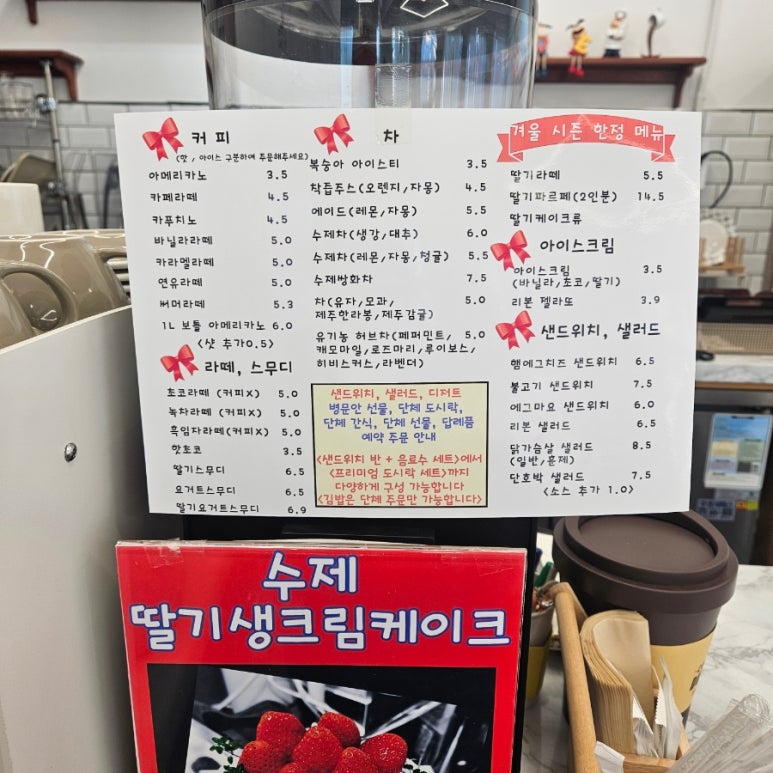 커피
(핫, 아이스 구분하여 주문해주세요)
아메리카노 3.5
카페라떼 4.5
카푸치노 4.5
바닐라라떼 5.0
카라멜라떼 5.0
연유라떼 5.0
써머라떼 5.3
1L 보틀 아메리카노 6.0
(샷 추가0.5)
라떼, 스무디
초코라떼 (커피X) 5.0
녹차라떼 (커피X) 5.0
흑임자라떼(커피X) 5.0
핫초코 3.5
딸기스무디 6.5
요거트스무디 6.5
딸기요거트스무디 6.9
차
복숭아 아이스티 3.5
착즙주스(오렌지,자몽) 4.5
에이드(레몬,자몽) 5.5
수제차(생강,대추) 6.0
수제차(레몬,자몽,청귤) 5.5
수제쌍화차 7.5
차(유자,모과, 5.0
제주한라봉,제주감귤)
유기농 허브차(페퍼민트, 5.0
캐모마일,로즈마리,루이보스,
히비스커스,라벤더)
샌드위치, 샐러드, 디저트
병문안 선물, 단체 도시락,
단체 간식, 단체 선물, 답례품
예약 주문 안내
<샌드위치 반 + 음료수 세트>에서
<프리미엄 도시락 세트>까지
다양하게 구성 가능합니다
<김밥은 단체 주문만 가능합니다>
겨울 시즌 한정 메뉴
딸기라떼 5.5
딸기파르페(2인분) 14.5
딸기케이크류
아이스크림
아이스크림 3.5
(바닐라,초코,딸기)
리본 젤라또 3.9
샌드위치, 샐러드
햄에그치즈 샌드위치 6.5
불고기 샌드위치 7.5
에그마요 샌드위치 6.0
리본 샐러드 6.5
닭가슴살 샐러드 8.5
(일반/훈제)
단호박 샐러드 7.5
<소스 추가 1.0>
수제
딸기생크림케이크